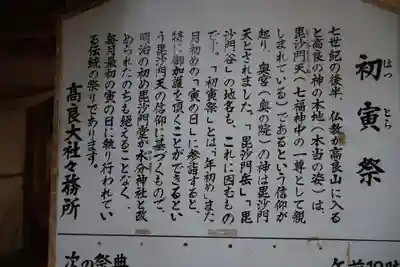 初寅祭
はつ とら
七世紀の後半、仏教が高良山に入る
と高良の神の本地(本当の姿)は、
毘沙門天(七福神中の一尊として親
しまれている)であるという信仰が
起り、奥宮(奥の院)の神は毘沙門
天とされました。「毘沙門岳」「毘
沙門谷」の地名も、これに因むもの
です。「初寅祭」とは、年初め、また
月初めの「寅の日」に参詣すると、
特に御加護を頂くことができるとい
う毘沙門天の信仰に基づくもので、
明治の初め毘沙門堂が水分神社と改
められたのちも絶えることなく、
毎月最初の寅の日に執り行われてい
る伝統の祭りであります。
高良大社々務所
次の祭典
午前10時